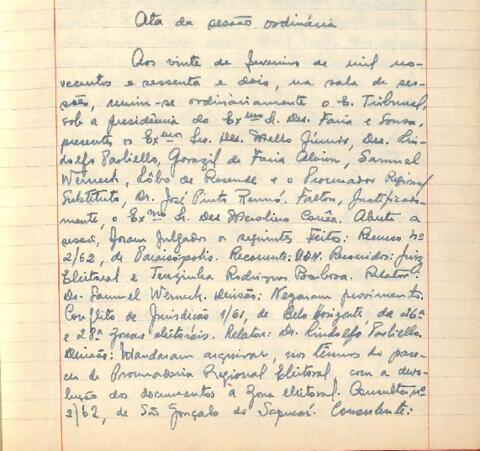 Ata da sessão ordinária
Aos vinte de fevereiro de mil no-
vecentos e sessenta e dois, na sala de ses-
sões, reuniu-se ordinàriamente o E. Tribunal,
sob a presidência do Exmo Sr. Des. Faria e Sousa,
presentes os Exmos Srs. Des. Mello Júnior, Drs. Lin-
dolfo Paoliello, Gorazil de Faria Alvim, Samuel
Werneck, Lôbo de Resende e o Procurador Regional
Substituto, Dr. José Pinto Rennó. Faltou, justificada-
mente, o Exmo Sr. Des Merolino Corrêa. Aberta a
sessão, foram julgados os seguintes feitos: Recurso nº
2/62, de Paraisópolis. Recorrente: UDN. Recorridos: Juiz
Eleitoral e Terezinha Rodrigues Barbosa. Relator:
Dr. Samuel Werneck. Decisão: Negaram provimento.
Conflito de Jurisdição 1/61, de Belo Horizonte da 26ª
e 28ª zonas eleitorais. Relator: Dr. Lindolfo Paoliello.
Decisão: Mandaram arquivar, nos têrmos do pare-
cer da Procuradoria Regional Eleitoral, com a devo-
lução dos documentos à zona eleitoral. Consulta nº
2/62, de São Gonçalo do Sapucaí. Consulente: